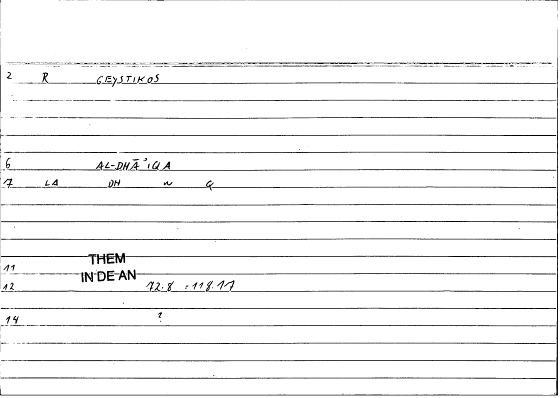 2 R GEYSTIKOS
6 AL-DHĀʾIQA
7 LA DH N Q
THEM
11 IN DE AN
12 72.8 = 118.17
14 ?